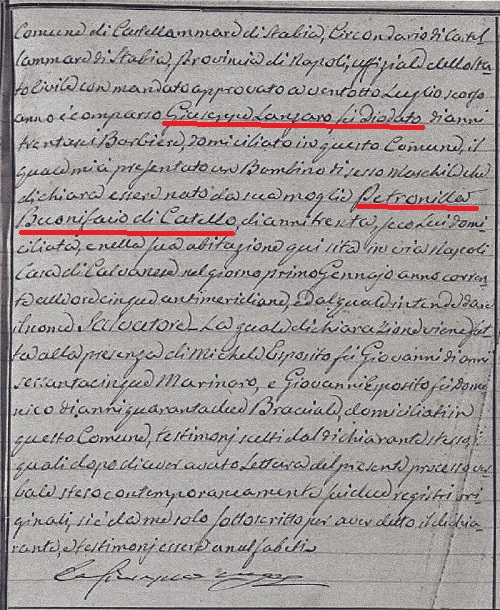 Comune di Castellammare di Stabia, Circondario di Castel
lammare di Stabia, Provincia di Napoli, uffiziale dello sta
to Civile con mandato approvato a ventotto Luglio scorso
anno è comparso Giuseppe Langaro fu Diodato di anni
trentasei Barbiere domiciliato in questo Comune, il
quale mi à presentato un Bambino di sesso maschile che
dichiara essere nato da sua moglie Petronilla
Buonifacio di Catello, di anni trenta, seco lui domi
ciliata, e nella sua abitazione qui sita in via Napoli
Casa di Calvanese nel giorno primo Gennajo anno corren
te alle ore cinque antimeridiane, ed al quale intende dare
il nome Salvatore_ La quale dichiarazione viene fat
ta alla presenza di Michele Esposito fu Giovanni di anni
sessantacinque Marinaro, e Giovanni Esposito fu Dome
nico di anni quarantadue Bracciale, domiciliati in
questo Comune, testimonj scelti dal dichiarante stesso, i
quali dopo di aver avuto lettura del presente processo ver
bale steso contemporaneamente sui due registri ori
ginali, si è da me solo sottoscritto per aver detto il dichia
rante, e testimonj essere analfabeti